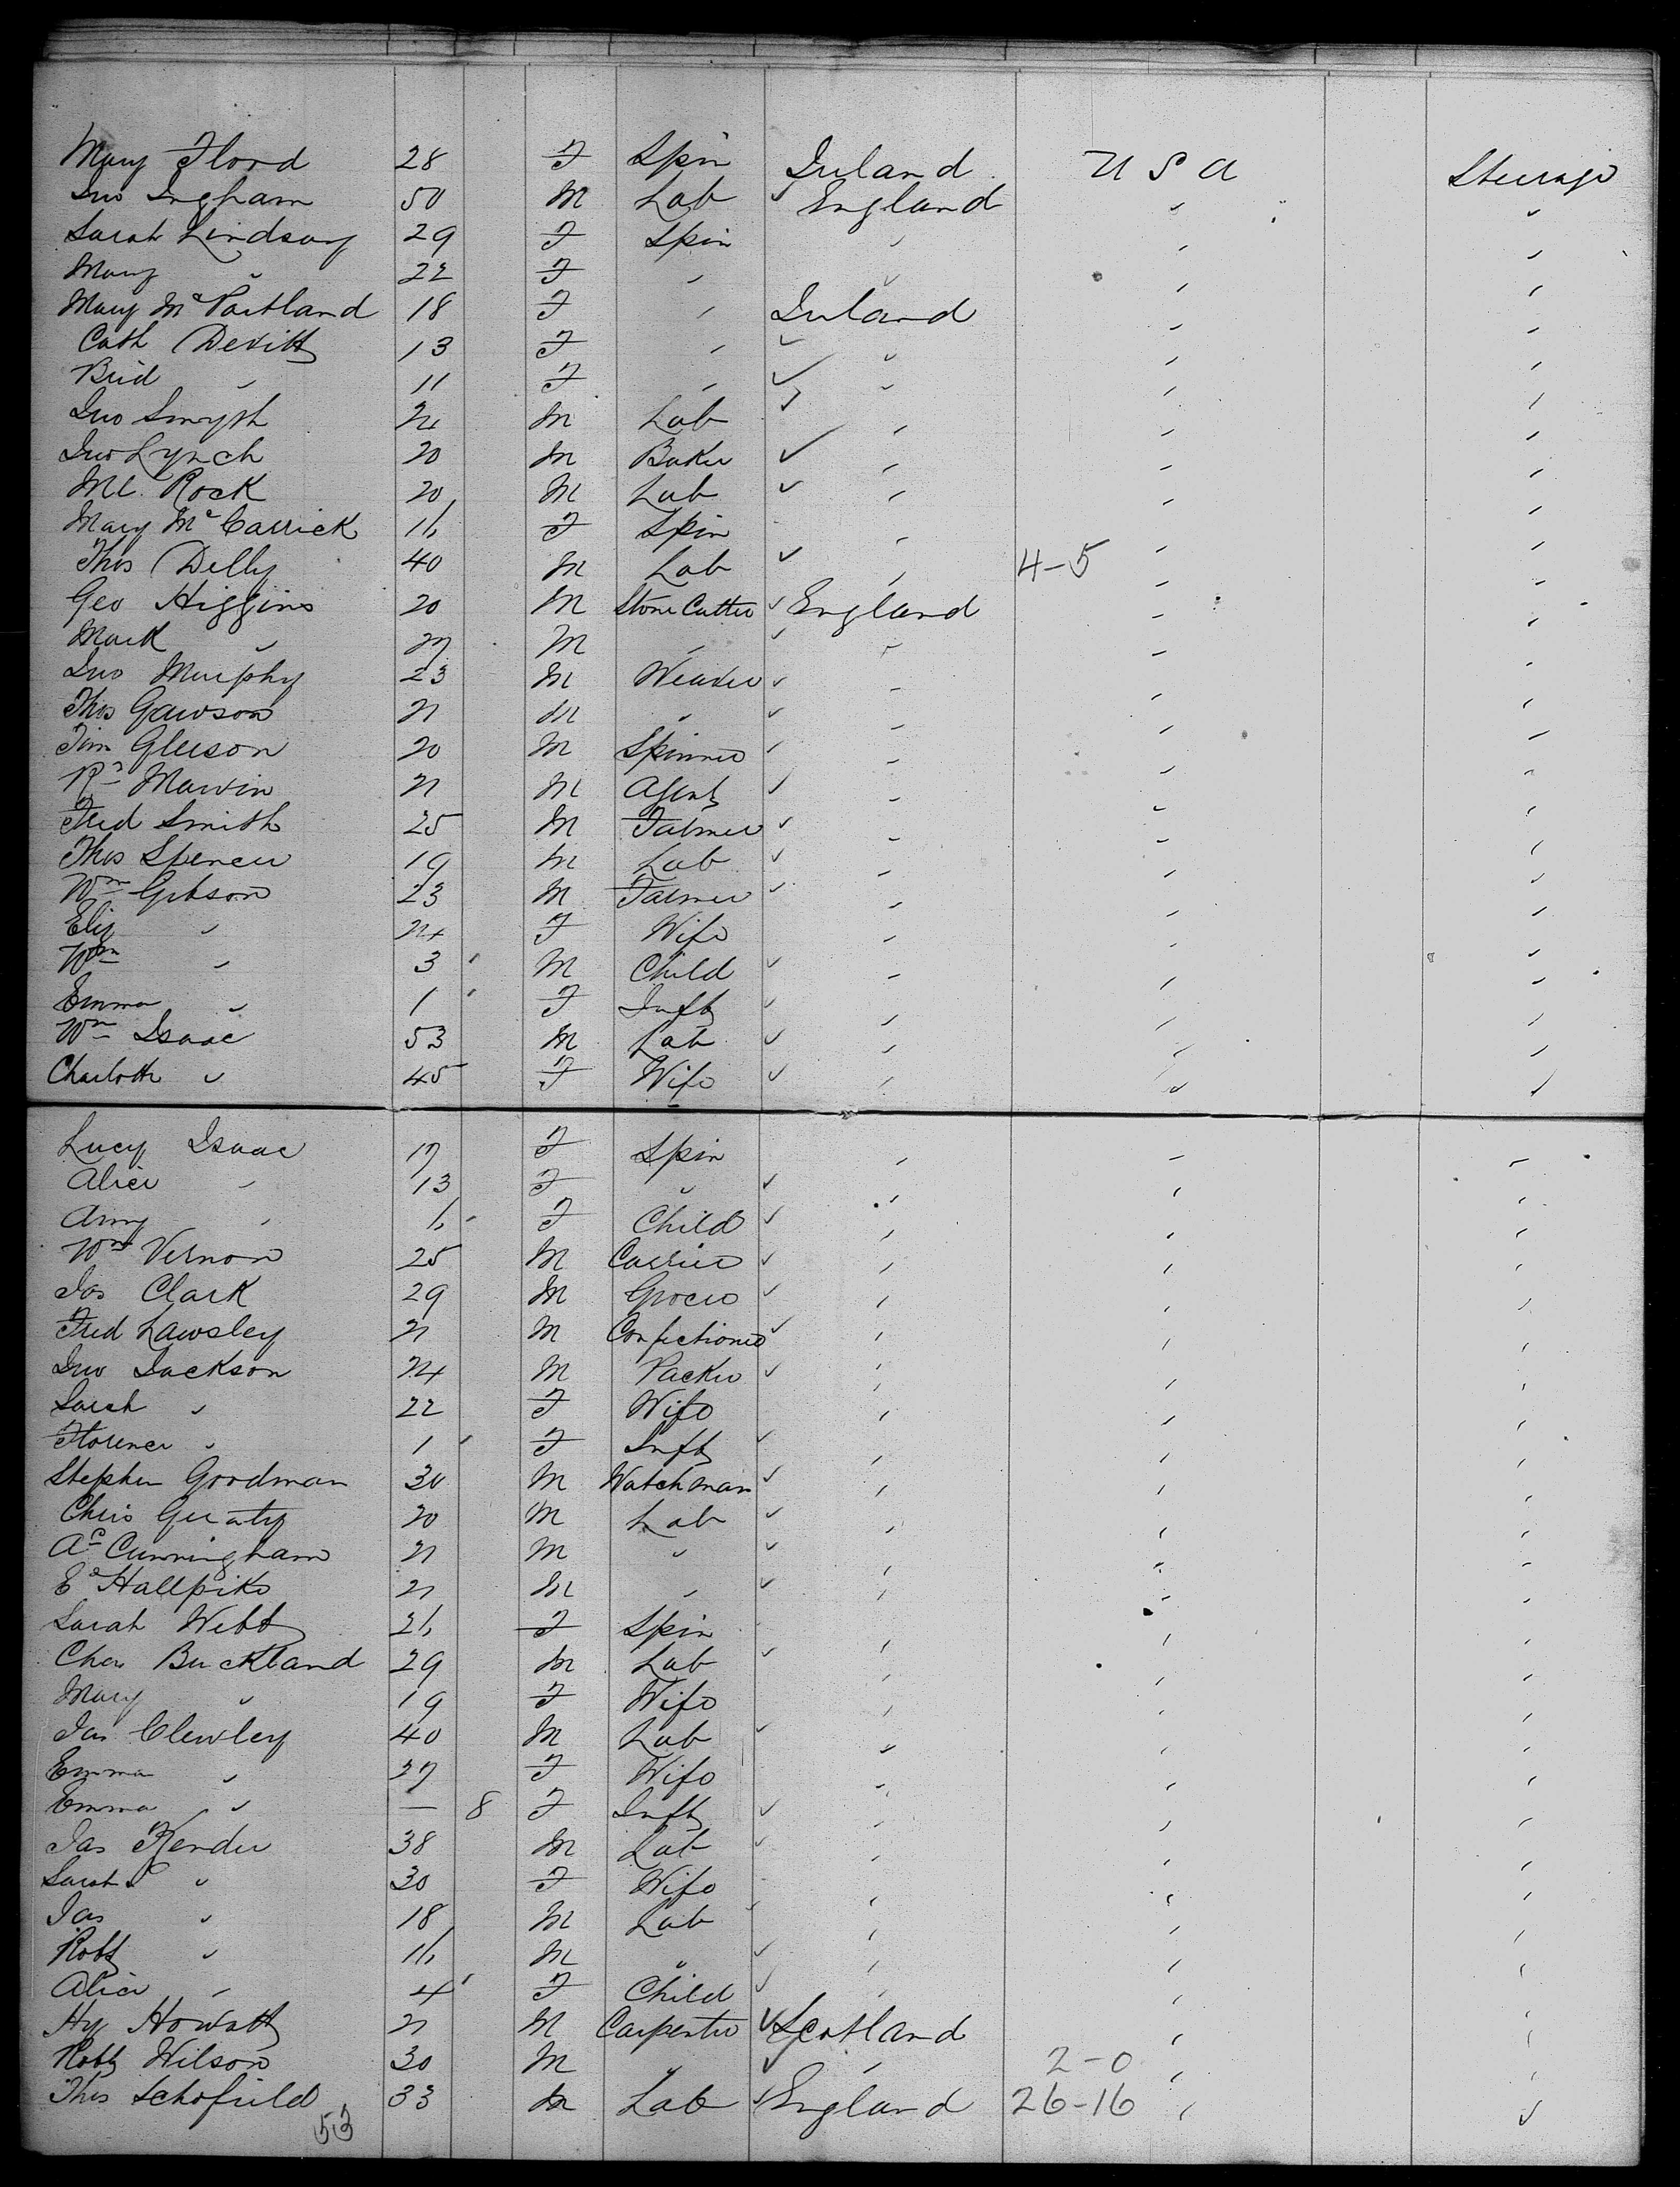 Mary Flood 28 F Spin Ireland U S A Steerage
Jno Ingham 50 M Lab England " "
Sarah Lindsay 29 F Spin " " "
Mary " 22 F " " " "
Mary McPartland 18 F " Ireland " "
Cath Devitt 13 F " " " "
Brid " 11 F " " " "
Jno Smyth 24 M Lab " " "
Jno Lynch 20 M Baker " " "
Ml. Rock 20 M Lab " " "
Mary McCarrick 16 F Spin " " "
Thos Delly 40 M Lab " 4-5 " "
Geo Higgins 20 M Stone Cutter England " "
Mark " 27 M " " " "
Jno Murphy 23 M Weaver " " "
Thos Gawson 21 M " " " "
Tim Gleeson 20 M Spinner " " "
Rd Marvin 21 M Agent " " "
Fred Smith 25 M Farmer " " "
Thos Spencer 19 M Lab " " "
Wm Gibson 23 M Farmer " " "
Eliz " 24 F Wife " " "
Wm " 3 M Child " " "
Emma " 1 F Inft " " "
Wm Isaac 53 M Lab " " "
Charlotte " 45 F Wife " " "
Lucy Isaac 17 F Spin " " "
Alice " 13 F " " " "
Amy " 6 F Child " " "
Wm Vernon 25 M Carrier " " "
Jas Clark 29 M Grocer " " "
Fred Lawsley 21 M Confectioner " " "
Jno Jackson 24 M Packer " " "
Sarah " 22 F Wife " " "
Florence " 1 F Inft " " "
Stephen Goodman 30 M Watchman " " "
Chris Geraty 20 M Lab " " "
Ac Cunningham 21 M " " " "
Ed Hallpike 21 M " " " "
Sarah Webb 26 F Spin " " "
Chas Buckland 29 M Lab " " "
Mary " 19 F Wife " " "
Jas Clewley 40 M Lab " " "
Emma " 37 F Wife " " "
Emma " — 8 F Inft " " "
Jas Render 38 M Lab " " "
Sarah " 30 F Wife " " "
Jas " 18 M Lab " " "
Robt " 16 M " " " "
Alice " 4 F Child " " "
Hy Howatt 21 M Carpenter Scotland " "
Robt Wilson 30 M " " 2-0 " "
Thos Schofield 33 M Lab England 26-16 " "
53